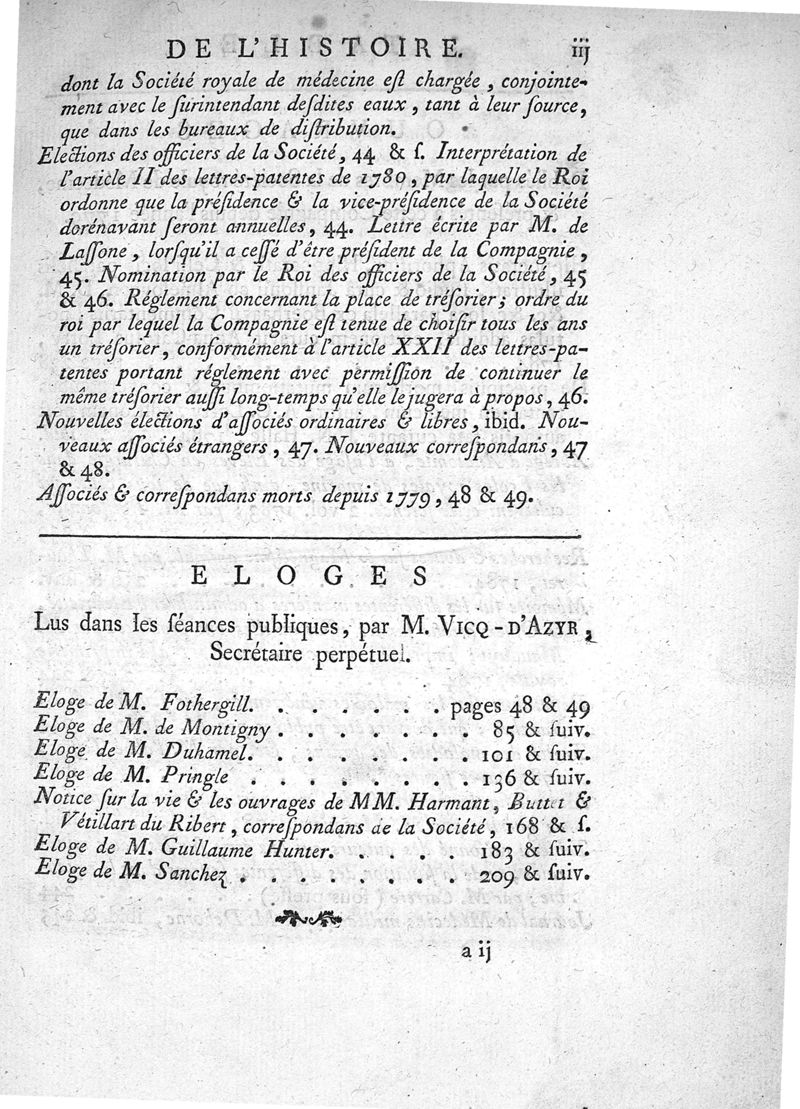 DE L'HISTOIRE. iij
dont la Société royale de médecine eſt chargée, conjointe-
ment avec le ſurintendant deſdites eaux, tant à leur ſource,
que dans les bureaux de diſtribution.
Elections des officiers de la Société, 44 & ſ. Interprétation de
l'article II des lettres-patentes de 1780, par laquelle le Roi
ordonne que la préſidence & la vice-préſidence de la Société
dorénavant ſeront annuelles, 44. Lettre écrite par M. de
Laſſone, lorſqu'il a ceſſé d'être préſident de la Compagnie,
45. Nomination par le Roi des officiers de la Société, 45
& 46. Réglement concernant la place de tréſorier; ordre du
roi par lequel la Compagnie eſt tenue de choiſir tous les ans
un tréſorier, conformément à l'article XXII des lettres-pa-
tentes portant réglement avec permiſſion de continuer le
même tréſorier auſſi long-temps qu'elle le jugera à propos, 46.
Nouvelles élections d'aſſociés ordinaires & libres, ibid. Nou-
veaux aſſociés étrangers, 47. Nouveaux correſpondans, 47
& 48.
Aſſociés & correſpondans morts depuis 1779, 48 & 49.
ELOGES
Lus dans les ſéances publiques, par M. VICQ-D'AZYR,
Secrétaire perpétuel.
Eloge de M. Fothergill. . . . . . . . pages 48 & 49
Eloge de M. de Montigny . . . . . . . . 85 & ſuiv.
Eloge de M. Duhamel. . . . . . . . . 101 & ſuiv.
Eloge de M. Pringle . . . . . . . . . 136 & ſuiv.
Notice ſur la vie & les ouvrages de MM. Harmant, Buttet &
Vétillart du Ribert, correſpondans de la Société, 168 & ſ.
Eloge de M. Guillaume Hunter. . . . . . 183 & ſuiv.
Eloge de M. Sanchez . . . . . . . . . 209 & ſuiv.
a ij